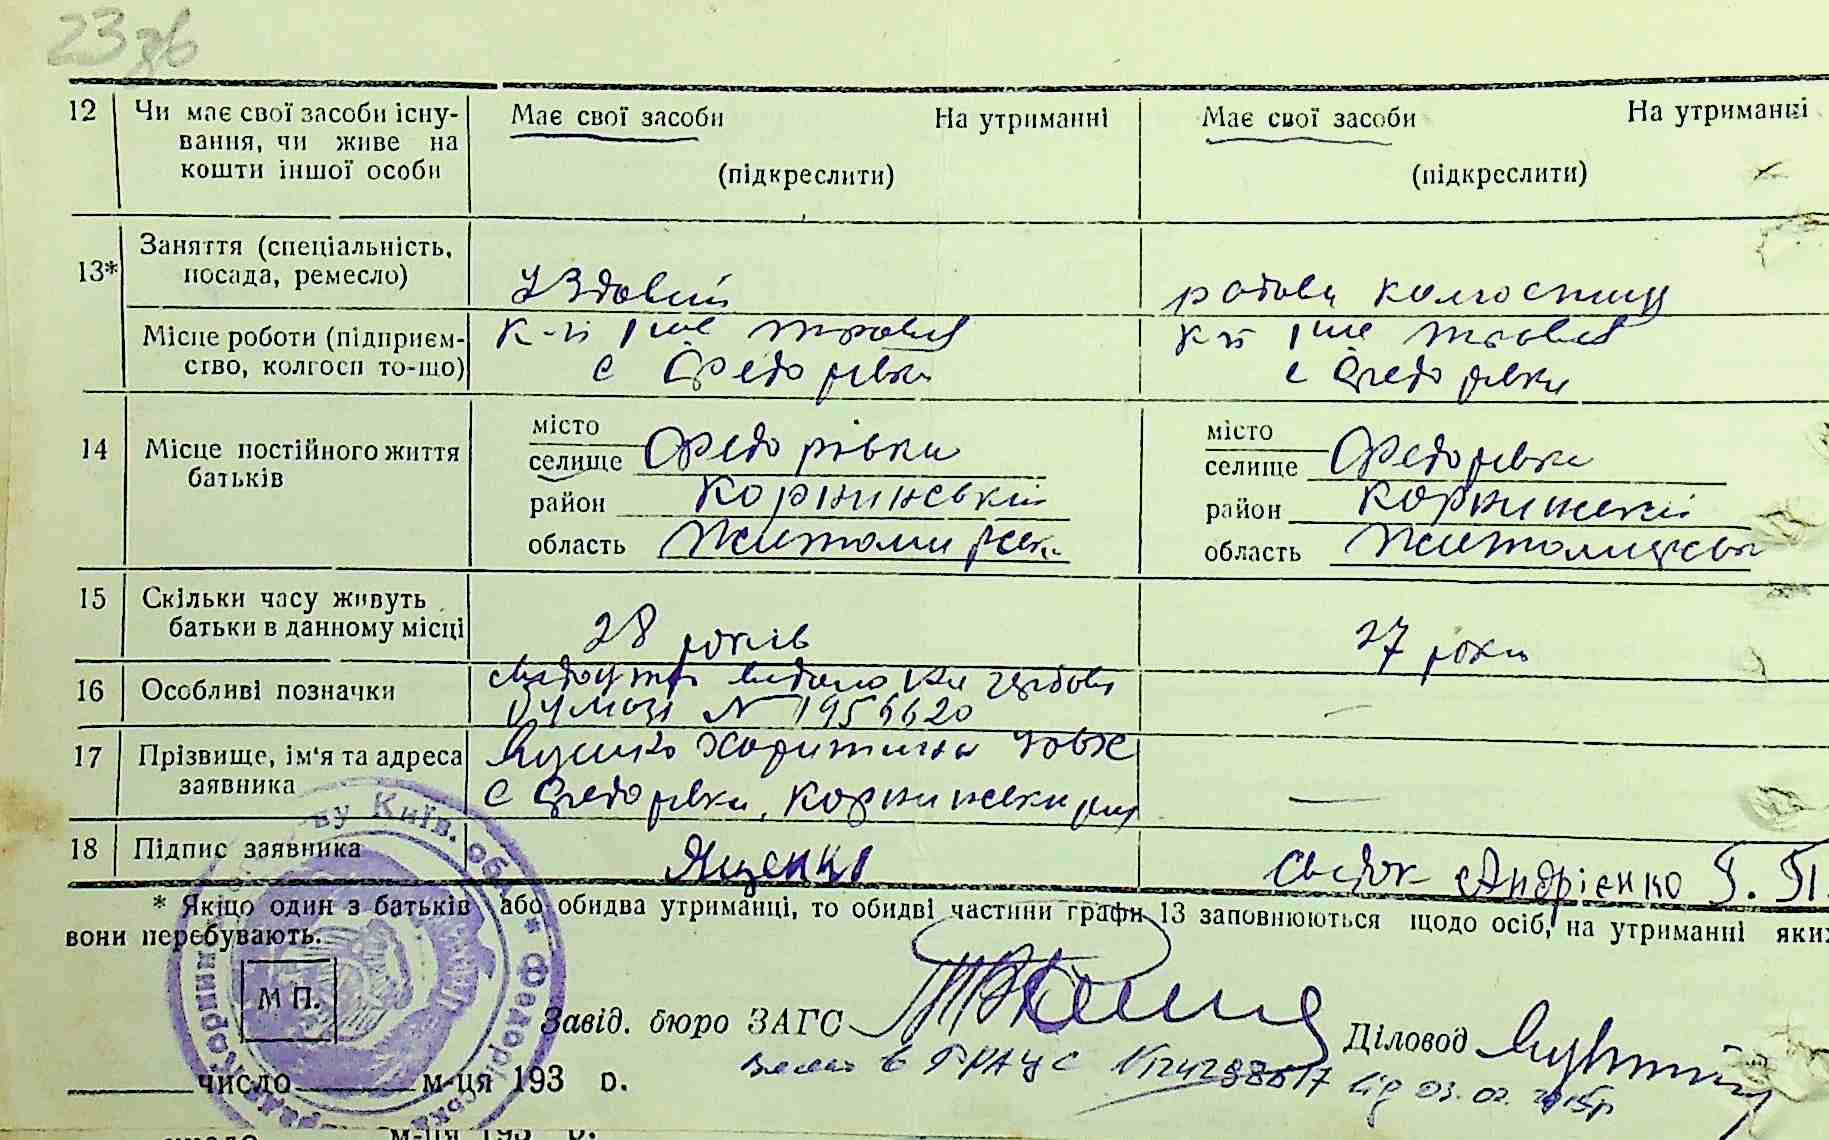 23 зв
12 Чи має свої засоби існу- Має свої засоби На утриманні Має свої засоби На утриманні
вання, чи живе на
кошти іншої особи (підкреслити) (підкреслити)
Заняття (спеціальність,
13* посада, ремесло) Їздовий рядова колгоспниця
Місце роботи (підприєм- к-п 1ше травня к-п 1ше травня
ство, колгосп то-що) с Федорівка с Федорівка
місто місто
14 Місце постійного життя селище Федорівка селище Федорівка
батьків район Корнинський район Корнинський
область Житомирська область Житомирська
15 Скільки часу живуть
батьки в данному місці 28 років 27 роки
16 Особливі позначки видано на гербові
бумазі N 1956620 —
17 Прізвище, ім'я та адреса Яценко Харитина
заявника с Федорівка, Корнинськи р-н —
18 Підпис заявника Яценко свідок Андрієнко Г. П.
* Якщо один з батьків або обидва утриманці, то обидві частини графи 13 заповнюються щодо осіб, на утриманні яких
вони перебувають.
М П.
Завід. бюро ЗАГС Діловод
в ДРАЦС від 03.02.2015р
число м-ця 193 р.
число м-ця 193 р.